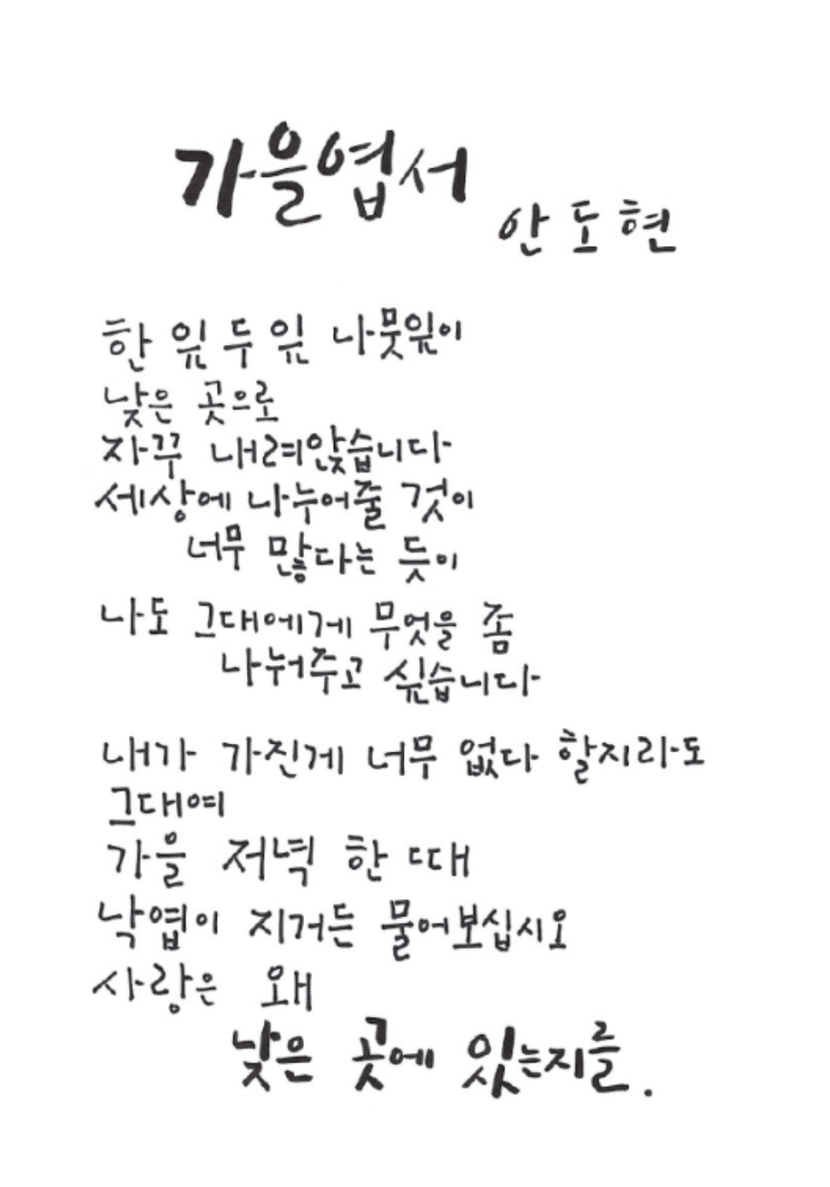 가을엽서
안도현
한 잎 두 잎 나뭇잎이
낮은 곳으로
자꾸 내려앉습니다
세상에 나누어줄 것이
너무 많다는 듯이
나도 그대에게 무엇을 좀
나눠주고 싶습니다
내가 가진게 너무 없다 할지라도
그대여
가을 저녁 한 때
낙엽이 지거든 물어보십시오
사랑은 왜
낮은 곳에 있는지를.